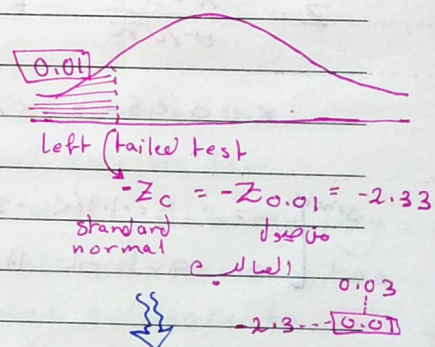 0.01
Left (tailed test
-Zc = -Z0.01 = -2.33
standard normal
من جدول
السالب
0.03
-2.3---0.01